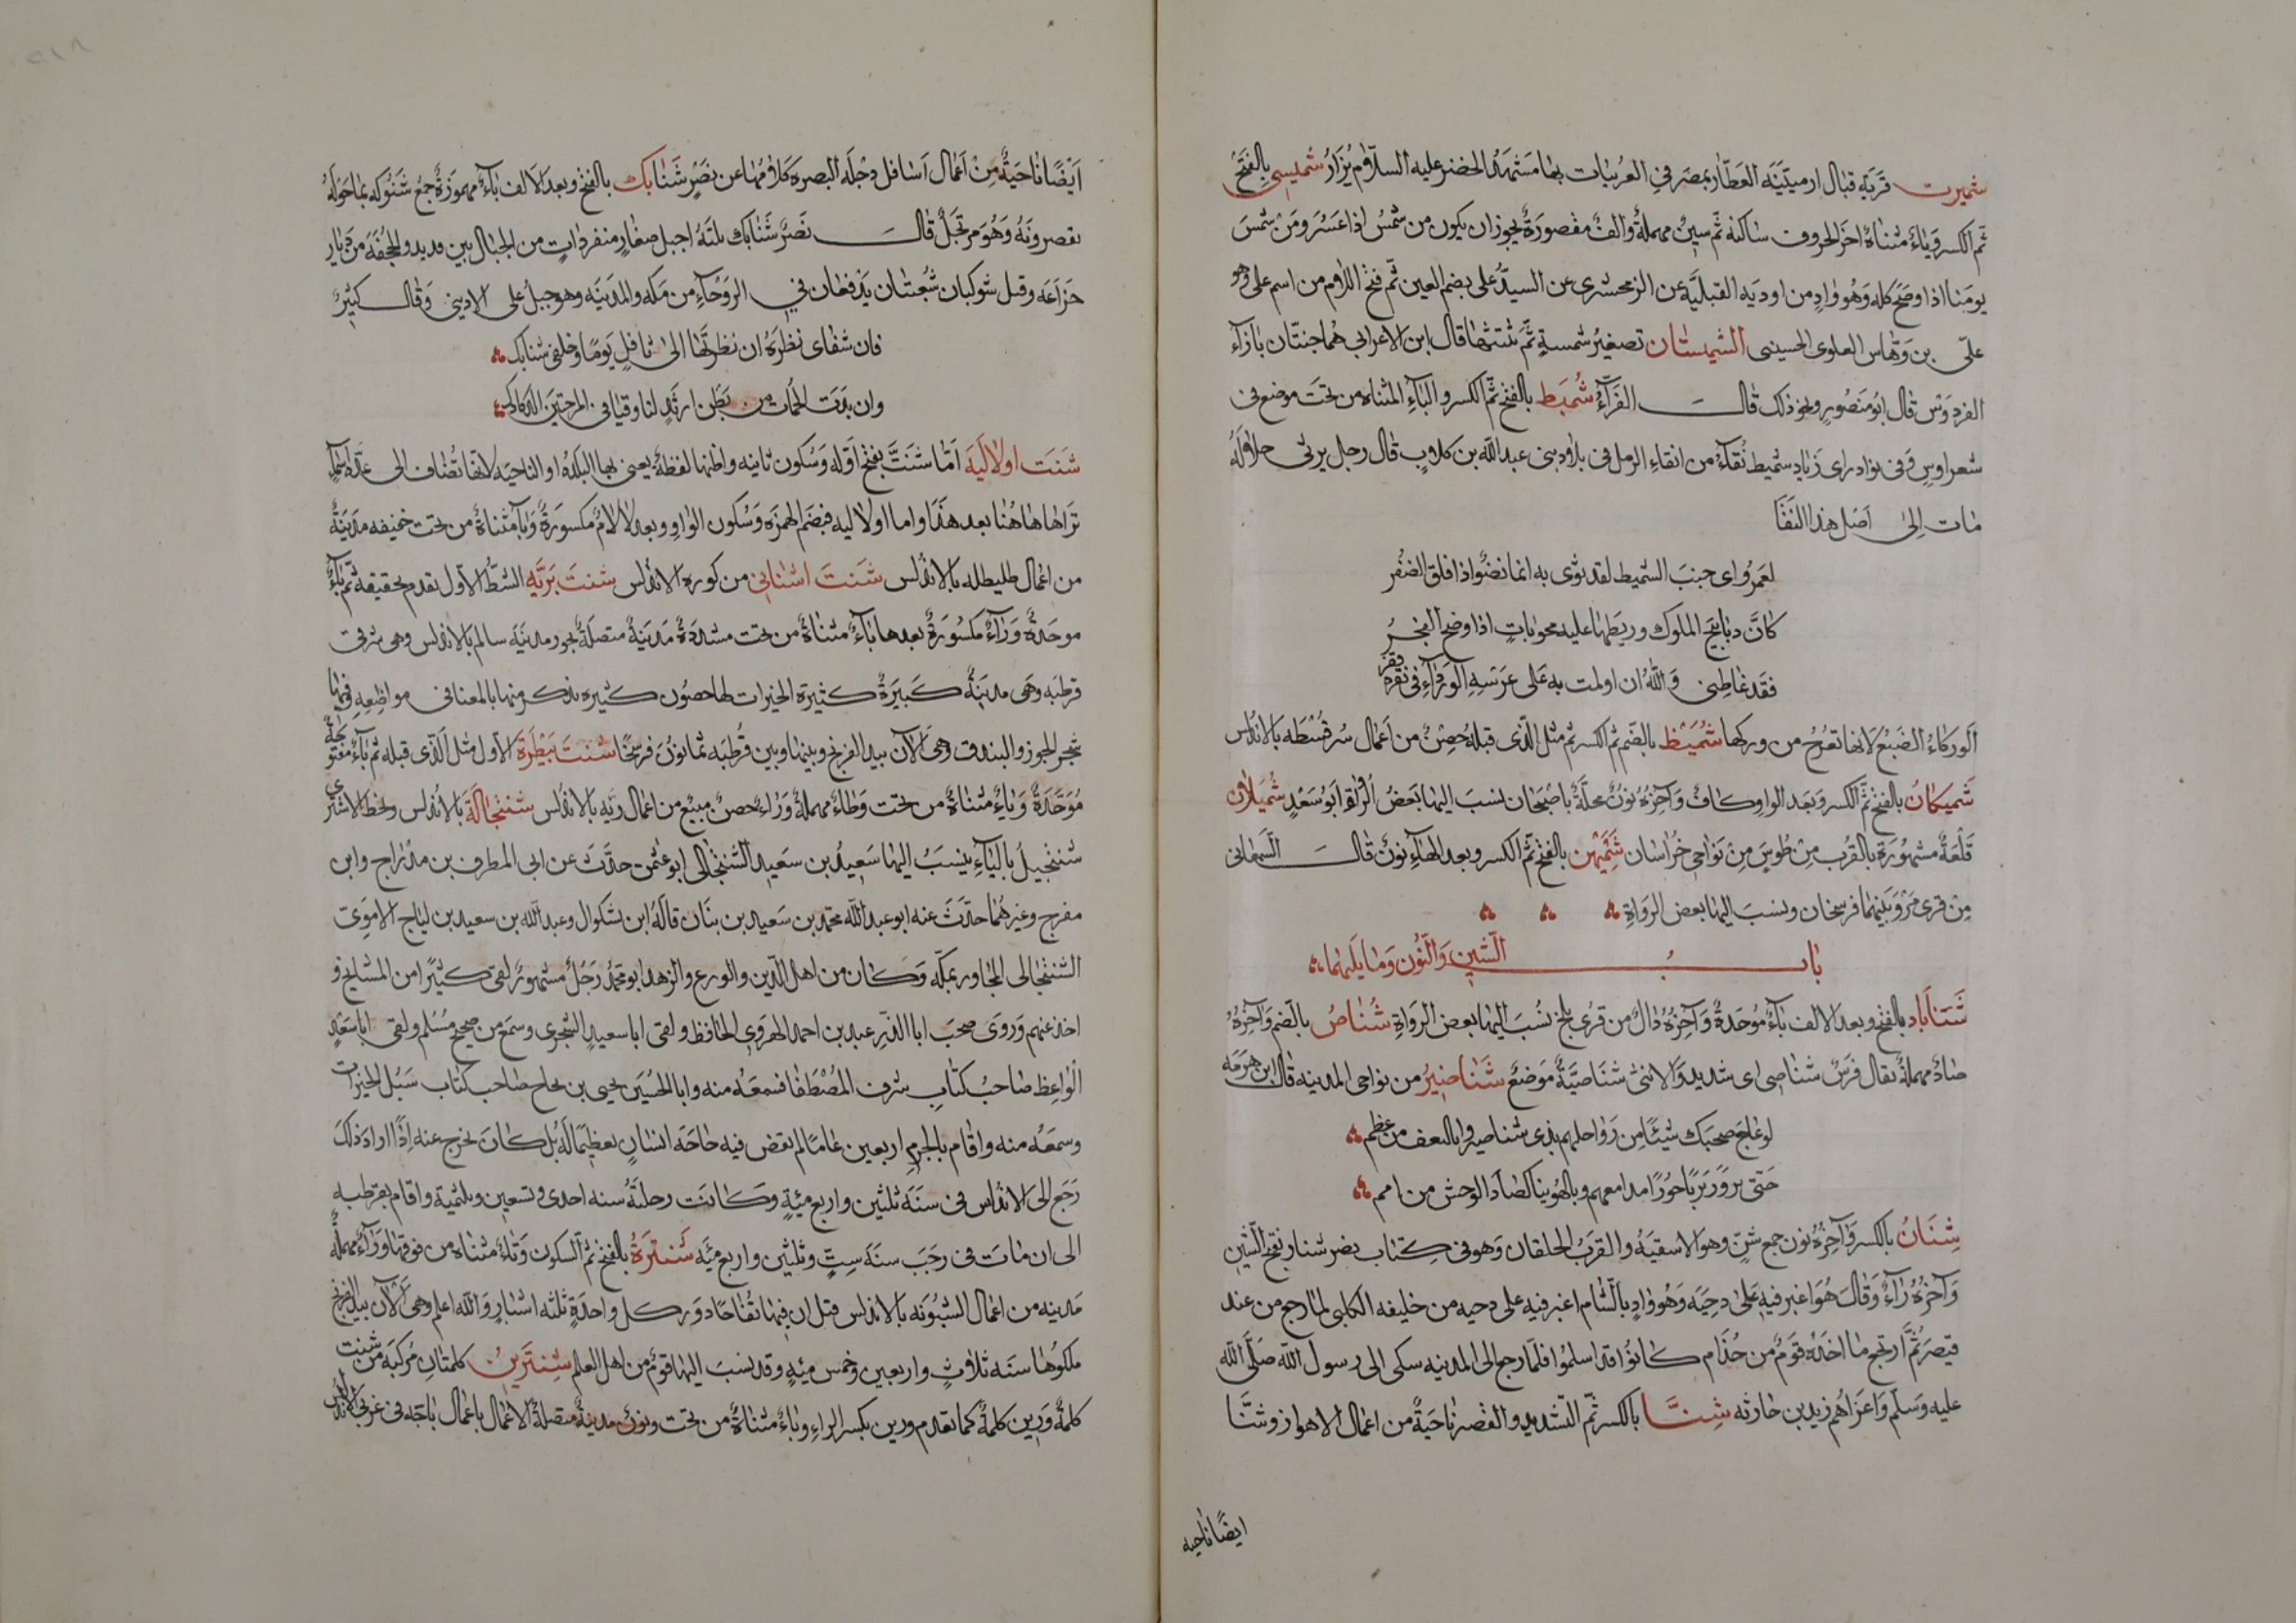 شميرت قرية قبال ارميتينه العطار بمصر في الغربيات بها مشهد الخضر عليه السلام يزار شميسى بالفتح
ثم الكسر وياء مثناة اخر الحروف ساكنة ثم سين مهملة والف مقصورة يجوز ان يكون من شمس اذا عسر ومن شمس
يومنا اذا وضح كله وهو واد من اودية القبلية عن الزمخشرى عن السيد على بضم العين ثم فتح اللام من اسم على وهو
على بن وهاس العلوى الحسينى الشميستان تصغير شمسة ثم تثنيتها قال ابن الاعرابى هما جنتان بازاء
الفردوس قال ابو منصور ونحو ذلك قال الفراء شميط بالفتح ثم الكسر والياء المثناة من تحت موضع فى
شعر اوس وفى نوادر ابى زياد شميط نقاء من انقاء الرمل فى بلاد بنى عبد الله بن كلاب قال رجل يرثى جملا له
مات الى اصل هذا النقا
لعمرو ابى جنب الشميط لقد ثوى به انما نضو اذا قلق الضفر
كان دبابيج الملوك وريطها عليه مجوبات اذا وضح الفجر
فقد غاظنى والله ان اولمت به على عرسه الوركاء فى نقرة قفر
الوركاء الضبع لانها تعرج من وركها شميط بالضم ثم الكسر ثم مثل الذى قبله حصن من اعمال سرقسطه بالاندلس
شميكان بالفتح ثم الكسر وبعد الواو كاف وآخره نون محلة باصبهان نسب اليها بعض الرواة ابو سعد شميلان
قلعة مشهورة بالقرب من طوس من نواحى خراسان شميهن بالفتح ثم الكسر وبعد الهاء نون قال السمعانى
من قرى مرو بينهما فرسخان وينسب اليها بعض الرواة
باب الشين والنون وما يليهما
شناباد بالفتح وبعد الالف باء موحدة وآخره ذال من قرى بلخ نسب اليها بعض الرواة شناص بالضم وآخره
صاد مهملة يقال فرس شناصى اى شديد والانثى شناصية موضع شناصير من نواحى المدينه قال ابن هرمه
لو عاج صحبك شيئا من رواحلهم بذى شناصير او بالنعف من عظم
حتى يروا ربربا حورا مدامعهم وبالهوينا لصاد الوحش من امم
شنان بالكسر وآخره نون جمع شن وهو الاسقية والقرب الخلقان وهو فى كتاب نصر شنار بفتح الشين
وآخره راء وقال هو اغير فيه على دحيه وهو واد بالشام اغير فيه على دحيه من خليفه الكلبى لما رجع من عند
قيصر ثم ارتجع ما اخذه قوم من جذام كانوا قد اسلموا فلما رجع الى المدينه شكى الى رسول الله صلى الله
عليه وسلم واغزاهم زيد بن حارثه شنا بالكسر ثم التشديد والقصر ناحية من اعمال الاهواز وشنا
ايضا ناحيه
ايضا ناحية من اعمال اسافل دجلة البصره كلاهما عن نصر شنابك بالفتح وبعد الالف باء مهموزة جمع شنوكه بما حوله
بقصرونه وهو مرتجل قال نصر شنابك ثلثة اجبل صغار منفردات من الجبال بين قديد والجحفة من ديار
خزاعة وقيل شنوكبان شعبتان يدفعان في الروحاء من مكه والمدينه وهو جبل على الادينى وقال كثير
فان شفاى نظرة ان نظرتها الى ثافل يوما وخلفى شنابك
وان بدت الخمات من بطن ارثد لنا وقيافى المرحتين الدكادك
شنت اولالية اما شنت بفتح اوله وسكون ثانيه واظنها لفظة يعنى بها البلدة او الناحيه لانها تضاف الى عدة اسماء
تراها هاهنا بعد هذا واما اولاليه فبضم الهمزه وسكون الواو وبعد لا لام مكسورة وياء مثناة من تحت خفيفه مدينة
من اعمال طليطله بالاندلس شنت اشتانى من كورة الاندلس شنت بريه الشط الاول تقدم تحقيقه ثم باء
موحدة وراء مكسورة بعدها ياء مثناة من تحت مشددة مدينة متصلة بحوز مدينة سالم بالاندلس وهى شرقى
قرطبه وهى مدينة كبيرة كثيرة الخيرات لها حصون كثيره نذكر منها بالمعنا فى مواضعه فيها
شجر الجوز والبندق وهى الآن بيد الفرنج وبينها وبين قرطبه ثمانون فرسخا شنت بيطرة الاول مثل الذى قبله ثم باء مفتوحة
موحدة وياء مثناة من تحت وطاء مهملة وراء حصن منيع من اعمال ريه بالاندلس شنتجالة بالاندلس وبخط الاشترى
شنتجيل بالياء ينسب اليها سعيد بن سعيد الشنتجالى ابو عثمن حدث عن ابى المطرف بن مدراج وابن
مفرج وغيرهما حدث عنه ابو عبد الله محمد بن سعيد بن بنان قاله ابن بشكوال وعبد الله بن سعيد بن لباج الاموى
الشنتجالى المجاور بمكه وكان من اهل الدين والورع والزهد ابو محمد رجل مشهور لقى كثيرا من المشايخ و
اخذ عنهم وروى صحب ابا الذر عبد بن احمد الهروى الحافظ ولقى ابا سعيد السجزى وسمع من صحيح مسلم ولقى ابا سعد
الواعظ صاحب كتاب شرف المصطفا فسمعه منه وابا الحسين يحيى بن نجاح صاحب كتاب سبل الخيرات
وسمعه منه واقام بالحرم اربعين عاما لم يقض فيه حاجة انسان تعظيما له بل كان يخرج عنه اذا اراد ذلك
رجع الى الاندلس فى سنة ثلثين واربع مئية وكانت رحلته سنه احدى وتسعين وثلثمية واقام بقرطبه
الى ان مات فى رجب سنة ست وثلثين واربع مئة شنترة بالفتح ثم السكون وتاء مثناه من فوقها وراء مهملة
مدينه من اعمال اشبونه بالاندلس قيل ان فيها تفاحا دور كل واحدة ثلثه اشبار والله اعلم وهى الآن بيد الفرنج
ملكوها سنة ثلاث واربعين وخمس مية وقد نسب اليها قوم من اهل العلم شنترين كلمتان مركبة من شنت
كلمة ورين كلمة كما تقدم ورين بكسر الراء وياء مثناة من تحت ونون مدينة متصلة الاعمال باعمال باجه فى غربى الاندلس